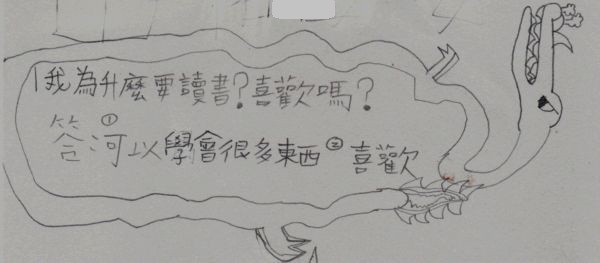 1我為升麼要讀書?喜歡嗎?
答①河以學會很多東西②喜歡